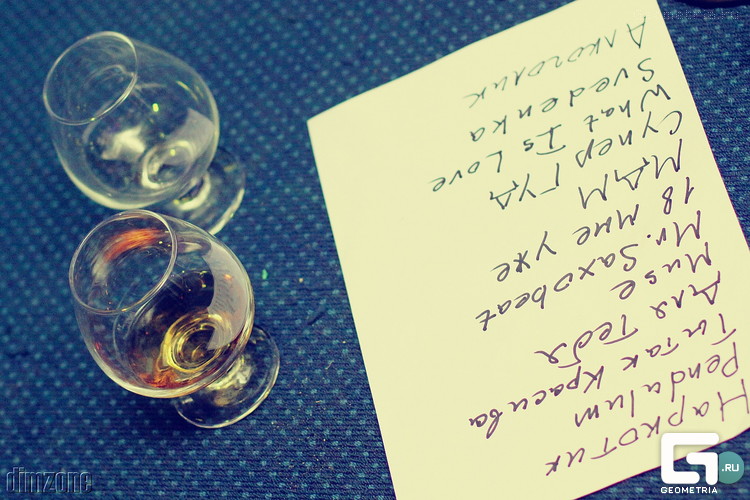 Наркотик
Pendulum
Ты так красива
Для тебя
Muse
Mr. Saxobeat
18 мне уже
МДМ
Супер ГУД
What Is Love
Svedenka
Алкоголик
dimzone
.RU
GEOMETRIA